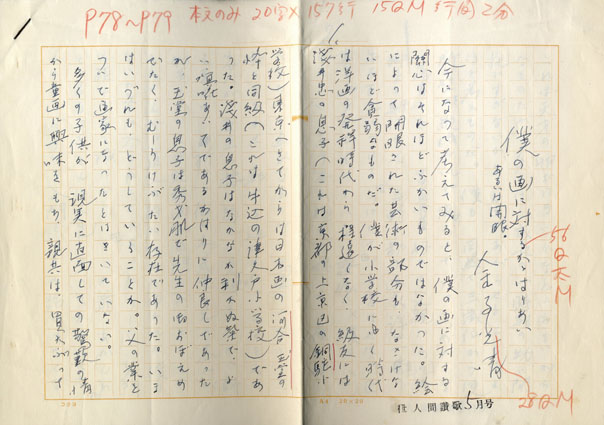 P78〜P79 本文のみ 20字×157行 15QM 行間2分
僕の画に対するかゝはりあい
あるいは開眼。
56Q太M
金子光晴
28QM
今になって考えてみると、僕の画に対する
関心はそれほどふかいものではなかった。絵
によって開眼された芸術の部分も、なさけな
いほど貧弱なものだ。僕が小学校に通ふ時代
は洋画の発祥時代から程遠くなく、級友には
浅井忠の息子(これは京都の上京区の銅駝小
学校)東京へきてからは日本画の河合玉堂の
忰と同級(これは牛込の津久戸小学校)であ
った。浅井の息子はなかなか利かぬ気で、よ
い喧嘩あひてであるかはりに仲良しであった
が、玉堂の息子は秀才肌で先生の御おぼえめ
でたく、むしろけぶたい存在であった。いま
はいづれも、どうしていることか。父の業を
ついで画家になったとはきいていない。
多くの子供が、現実に直面しての驚歎の情
から童画に興味をもち、親共は、買ふ
(1)人間讃歌 5月号